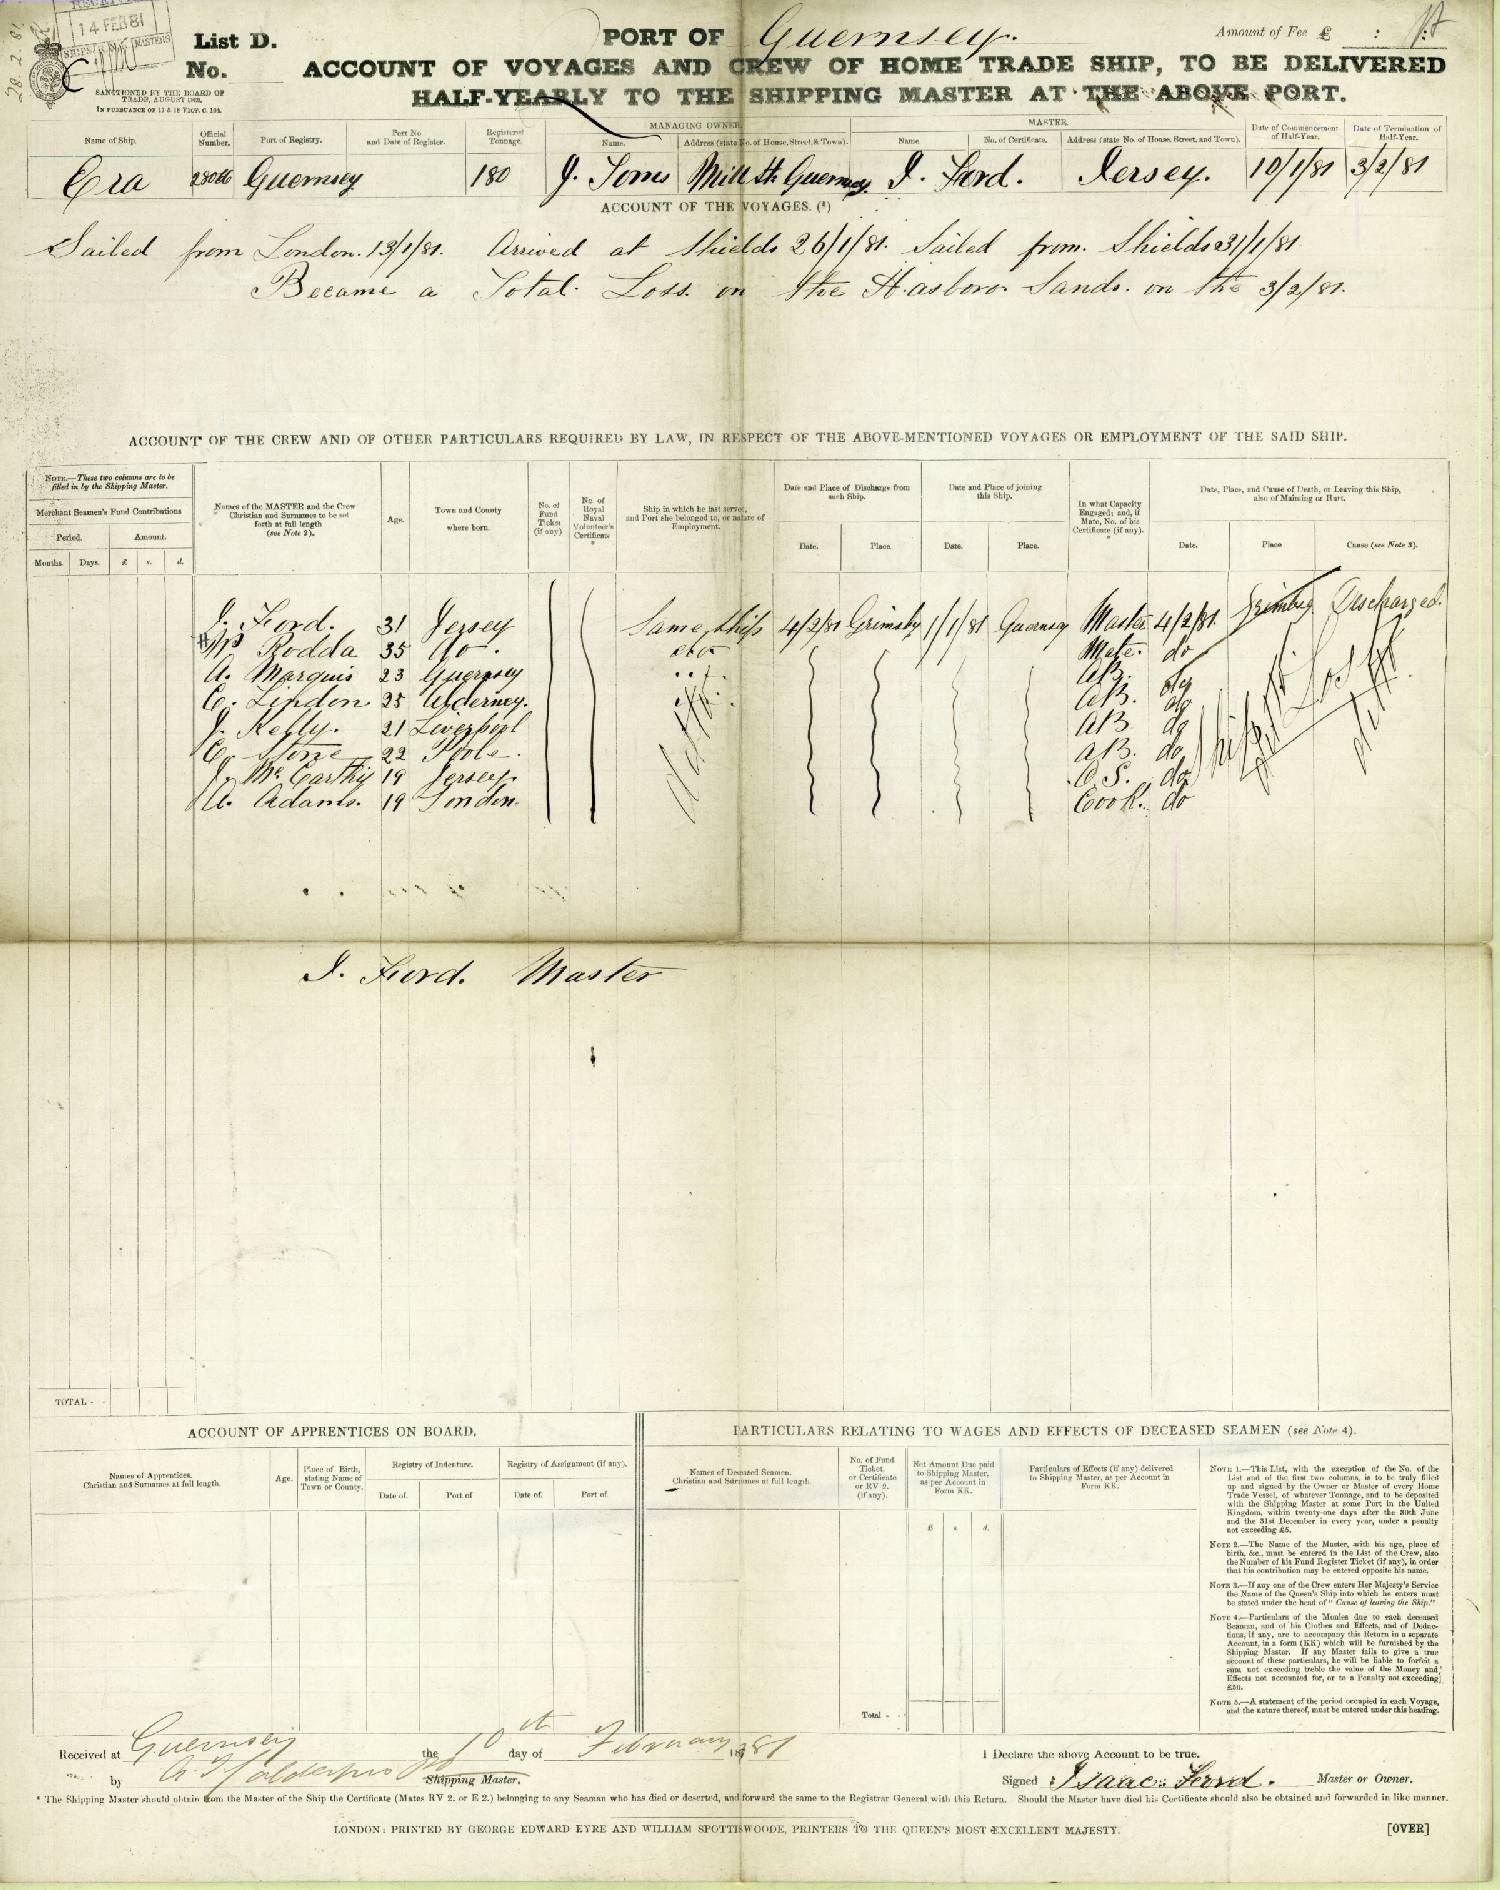 14 FEB 81
28.2.81
List D.
No.
SANCTIONED BY THE BOARD OF
TRADE, AUGUST
IN PURSUANCE OF 17 & 18 VICT. C. 104.
PORT OF Guernsey.
Amount of Fee £ : :
ACCOUNT OF VOYAGES AND CREW OF HOME TRADE SHIP, TO BE DELIVERED
HALF-YEARLY TO THE SHIPPING MASTER AT THE ABOVE PORT.
Name of Ship. Official Number. Port of Registry. Port No and Date of Register. Registered Tonnage. MANAGING OWNER. Name. Address (state No. of House, Street, & Town). MASTER. Name. No. of Certificate. Address (state No. of House, Street, and Town). Date of Commencement of Half-Year. Date of Termination of Half-Year.
Era 28066 Guernsey 180 J. Toms Mill St. Guernsey I. Ford. Jersey. 10/1/81 3/2/81
ACCOUNT OF THE VOYAGES. (⁵)
Sailed from London. 13/1/81. Arrived at Shields 26/1/81. Sailed from. Shields 31/1/81
Became a Total Loss. on the Hasboro Sands. on the 3/2/81.
ACCOUNT OF THE CREW AND OF OTHER PARTICULARS REQUIRED BY LAW, IN RESPECT OF THE ABOVE-MENTIONED VOYAGES OR EMPLOYMENT OF THE SAID SHIP.
NOTE.—These two columns are to be filled in by the Shipping Master.
Merchant Seamen's Fund Contributions
Period. Amount.
Months. Days. £ s. d.
Names of the MASTER and the Crew Christian and Surnames to be set forth at full length (see Note 2).
Age.
Town and County where born.
No. of Fund Ticket (if any)
No. of Royal Naval Volunteer's Certificate *
Ship in which he last served, and Port she belonged to, or nature of Employment.
Date and Place of Discharge from such Ship.
Date. Place.
Date and Place of joining this Ship.
Date. Place.
In what Capacity Engaged; and, if Mate, No. of his Certificate (if any).
Date, Place, and Cause of Death, or Leaving this Ship, also of Maiming or Hurt.
Date. Place Cause (see Note 3).
I. Ford. 31 Jersey Same Ship 4/2/81 Grimsby 1/1/81 Guernsey Master 4/2/81. Grimsby Discharged.
Rodda 35 do. Mate. do
A. Marquis 23 Guernsey AB. do
C. Lindon 25 Alderney. AB. do
J. Kelly. 21 Liverpool AB do
C. Stone 22 Poole. AB. do
J. McCarthy 19 Jersey. O.S. do
A. Adams. 19 London. Cook. do
ditto
Ship Loss
ditto
I. Ford. Master
TOTAL -
ACCOUNT OF APPRENTICES ON BOARD.
Names of Apprentices. Christian and Surnames at full length.
Age.
Place of Birth, stating Name of Town or County.
Registry of Indenture.
Date of. Port of
Registry of Assignment (if any).
Date of. Port of.
PARTICULARS RELATING TO WAGES AND EFFECTS OF DECEASED SEAMEN (see Note 4).
Names of Deceased Seamen. Christian and Surnames at full length.
No. of Fund Ticket, or Certificate or RV 2. (if any).
Net Amount Due paid to Shipping Master, as per Account in Form KK.
£ s. d.
Particulars of Effects (if any) delivered to Shipping Master, as per Account in Form KK.
Total -
NOTE 1.—This List, with the exception of the No. of the
List and of the first two columns, is to be truly filled
up and signed by the Owner or Master of every Home
Trade Vessel, of whatever Tonnage, and to be deposited
with the Shipping Master at some Port in the United
Kingdom, within twenty-one days after the 30th June
and the 31st December in every year, under a penalty
not exceeding £5.
NOTE 2.—The Name of the Master, with his age, place of
birth, &c., must be entered in the List of the Crew, also
the Number of his Fund Register Ticket (if any), in order
that his contribution may be entered opposite his name.
NOTE 3.—If any one of the Crew enters Her Majesty's Service
the Name of the Queen's Ship into which he enters must
be stated under the head of "Cause of leaving the Ship."
NOTE 4.—Particulars of the Monies due to each deceased
Seaman, and of his Clothes and Effects, and of Deduc-
tions, if any, are to accompany this Return in a separate
Account, in a form (KK) which will be furnished by the
Shipping Master. If any Master fails to give a true
account of these particulars, he will be liable to forfeit a
sum not exceeding treble the value of the Money and
Effects not accounted for, or to a Penalty not exceeding
£50.
NOTE 5.—A statement of the period occupied in each Voyage,
and the nature thereof, must be entered under this heading.
Received at Guernsey the 10th day of February 1881
by Shipping Master.
I Declare the above Account to be true.
Signed Isaac Ford. Master or Owner.
* The Shipping Master should obtain from the Master of the Ship the Certificate (Mates RV 2. or E 2.) belonging to any Seaman who has died or deserted, and forward the same to the Registrar General with this Return. Should the Master have died his Certificate should also be obtained and forwarded in like manner.
LONDON: PRINTED BY GEORGE EDWARD EYRE AND WILLIAM SPOTTISWOODE, PRINTERS TO THE QUEEN'S MOST EXCELLENT MAJESTY.
[OVER]